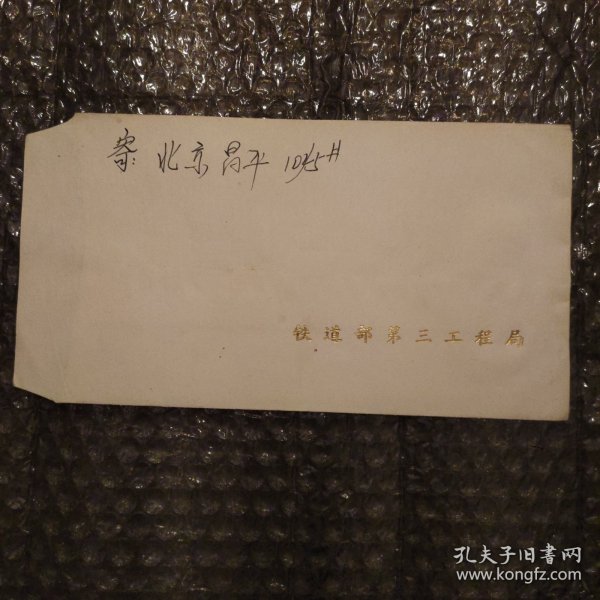 寄: 北京昌平 1045#
铁道部第三工程局
孔夫子旧書网
www.kongfz.com